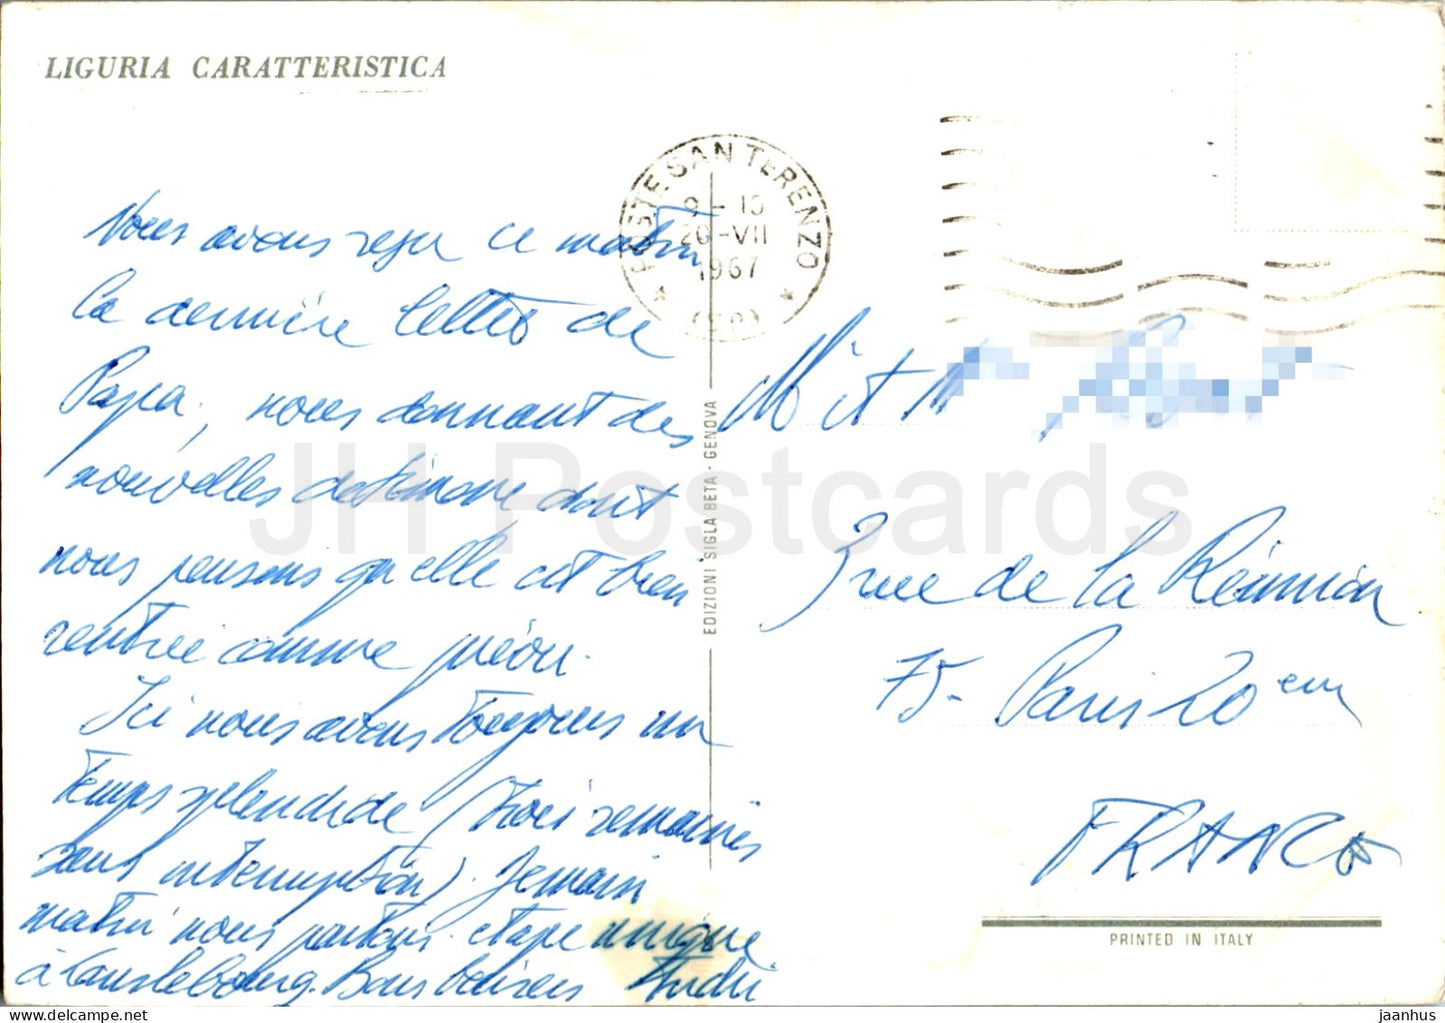 LIGURIA CARATTERISTICA
POSTE SAN TERENZO
20-VII
1967
(SP)
Nous avons reçu ce matin
la dernière lettre de
Papa, nous donnant des
nouvelles de Simone dont
nous pensons qu'elle est bien
rentrée comme prévu.
Ici nous avons toujours un
temps splendide (trois semaines
sans interruption). Demain
matin nous partons. étape unique
à Lanslebourg. Bons baisers André
EDIZIONI SIGLA BETA - GENOVA
M et M
3 rue de la Réunion
75 - Paris 20 em
FRANCE
PRINTED IN ITALY
JH Postcards
jaanhus